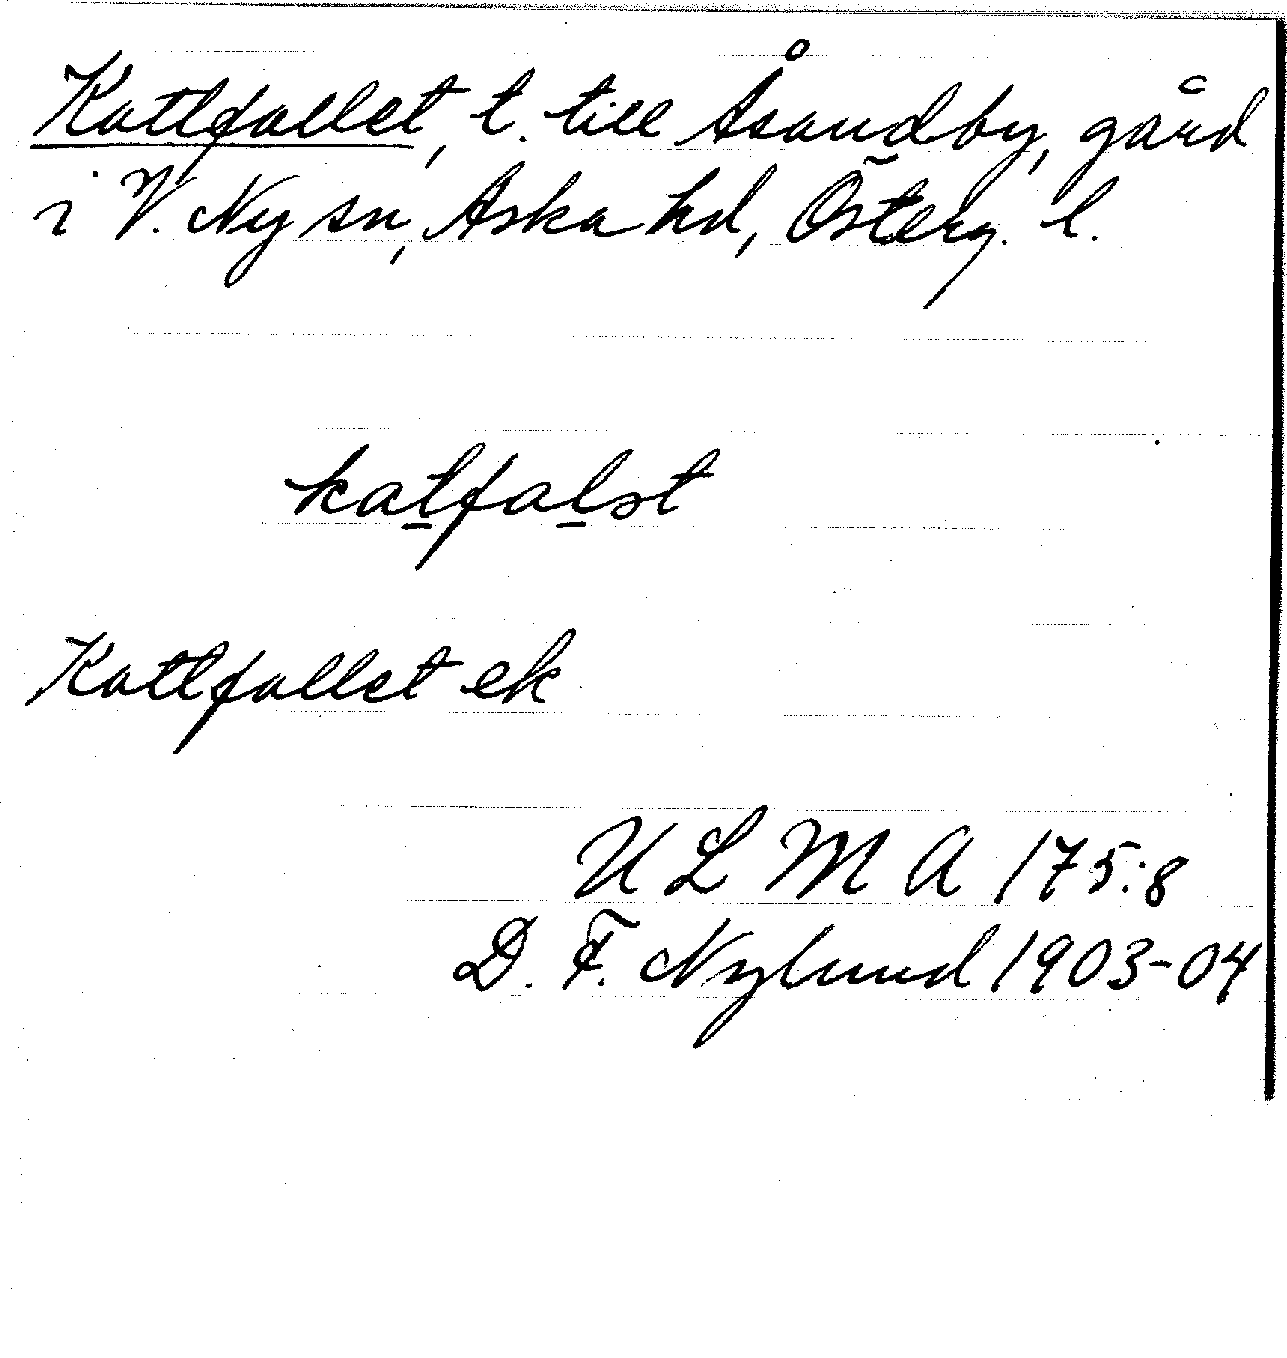 Kattfallet, t. till Åsandby, gård
i V. Ny sn, Aska hd, Österg. l.
katfalst
Kattfallet ek
U L M A 175:8
D. F. Nylund 1903-04